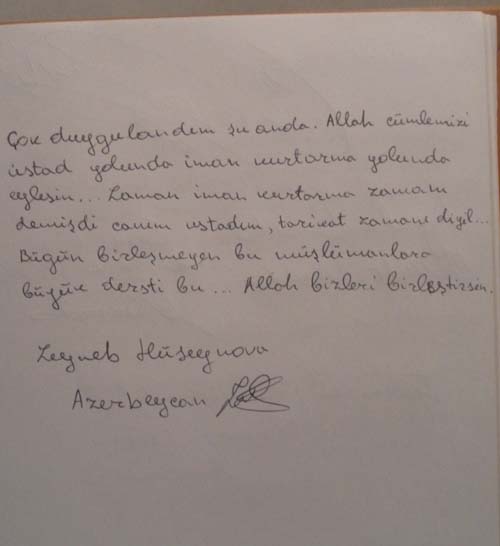 Çok duygulandım şu anda. Allah cümlemizi
üstad yolunda iman kurtarma yolunda
eylesin... Zaman iman kurtarma zamanı
demişdi canım ustadım, tarikat zamanı diyil...
Bügün birleşmeyen bu müslümanlara
büyük dersti bu... Allah bizleri birleştirsin.
Zeyneb Hüseynova
Azerbeycan